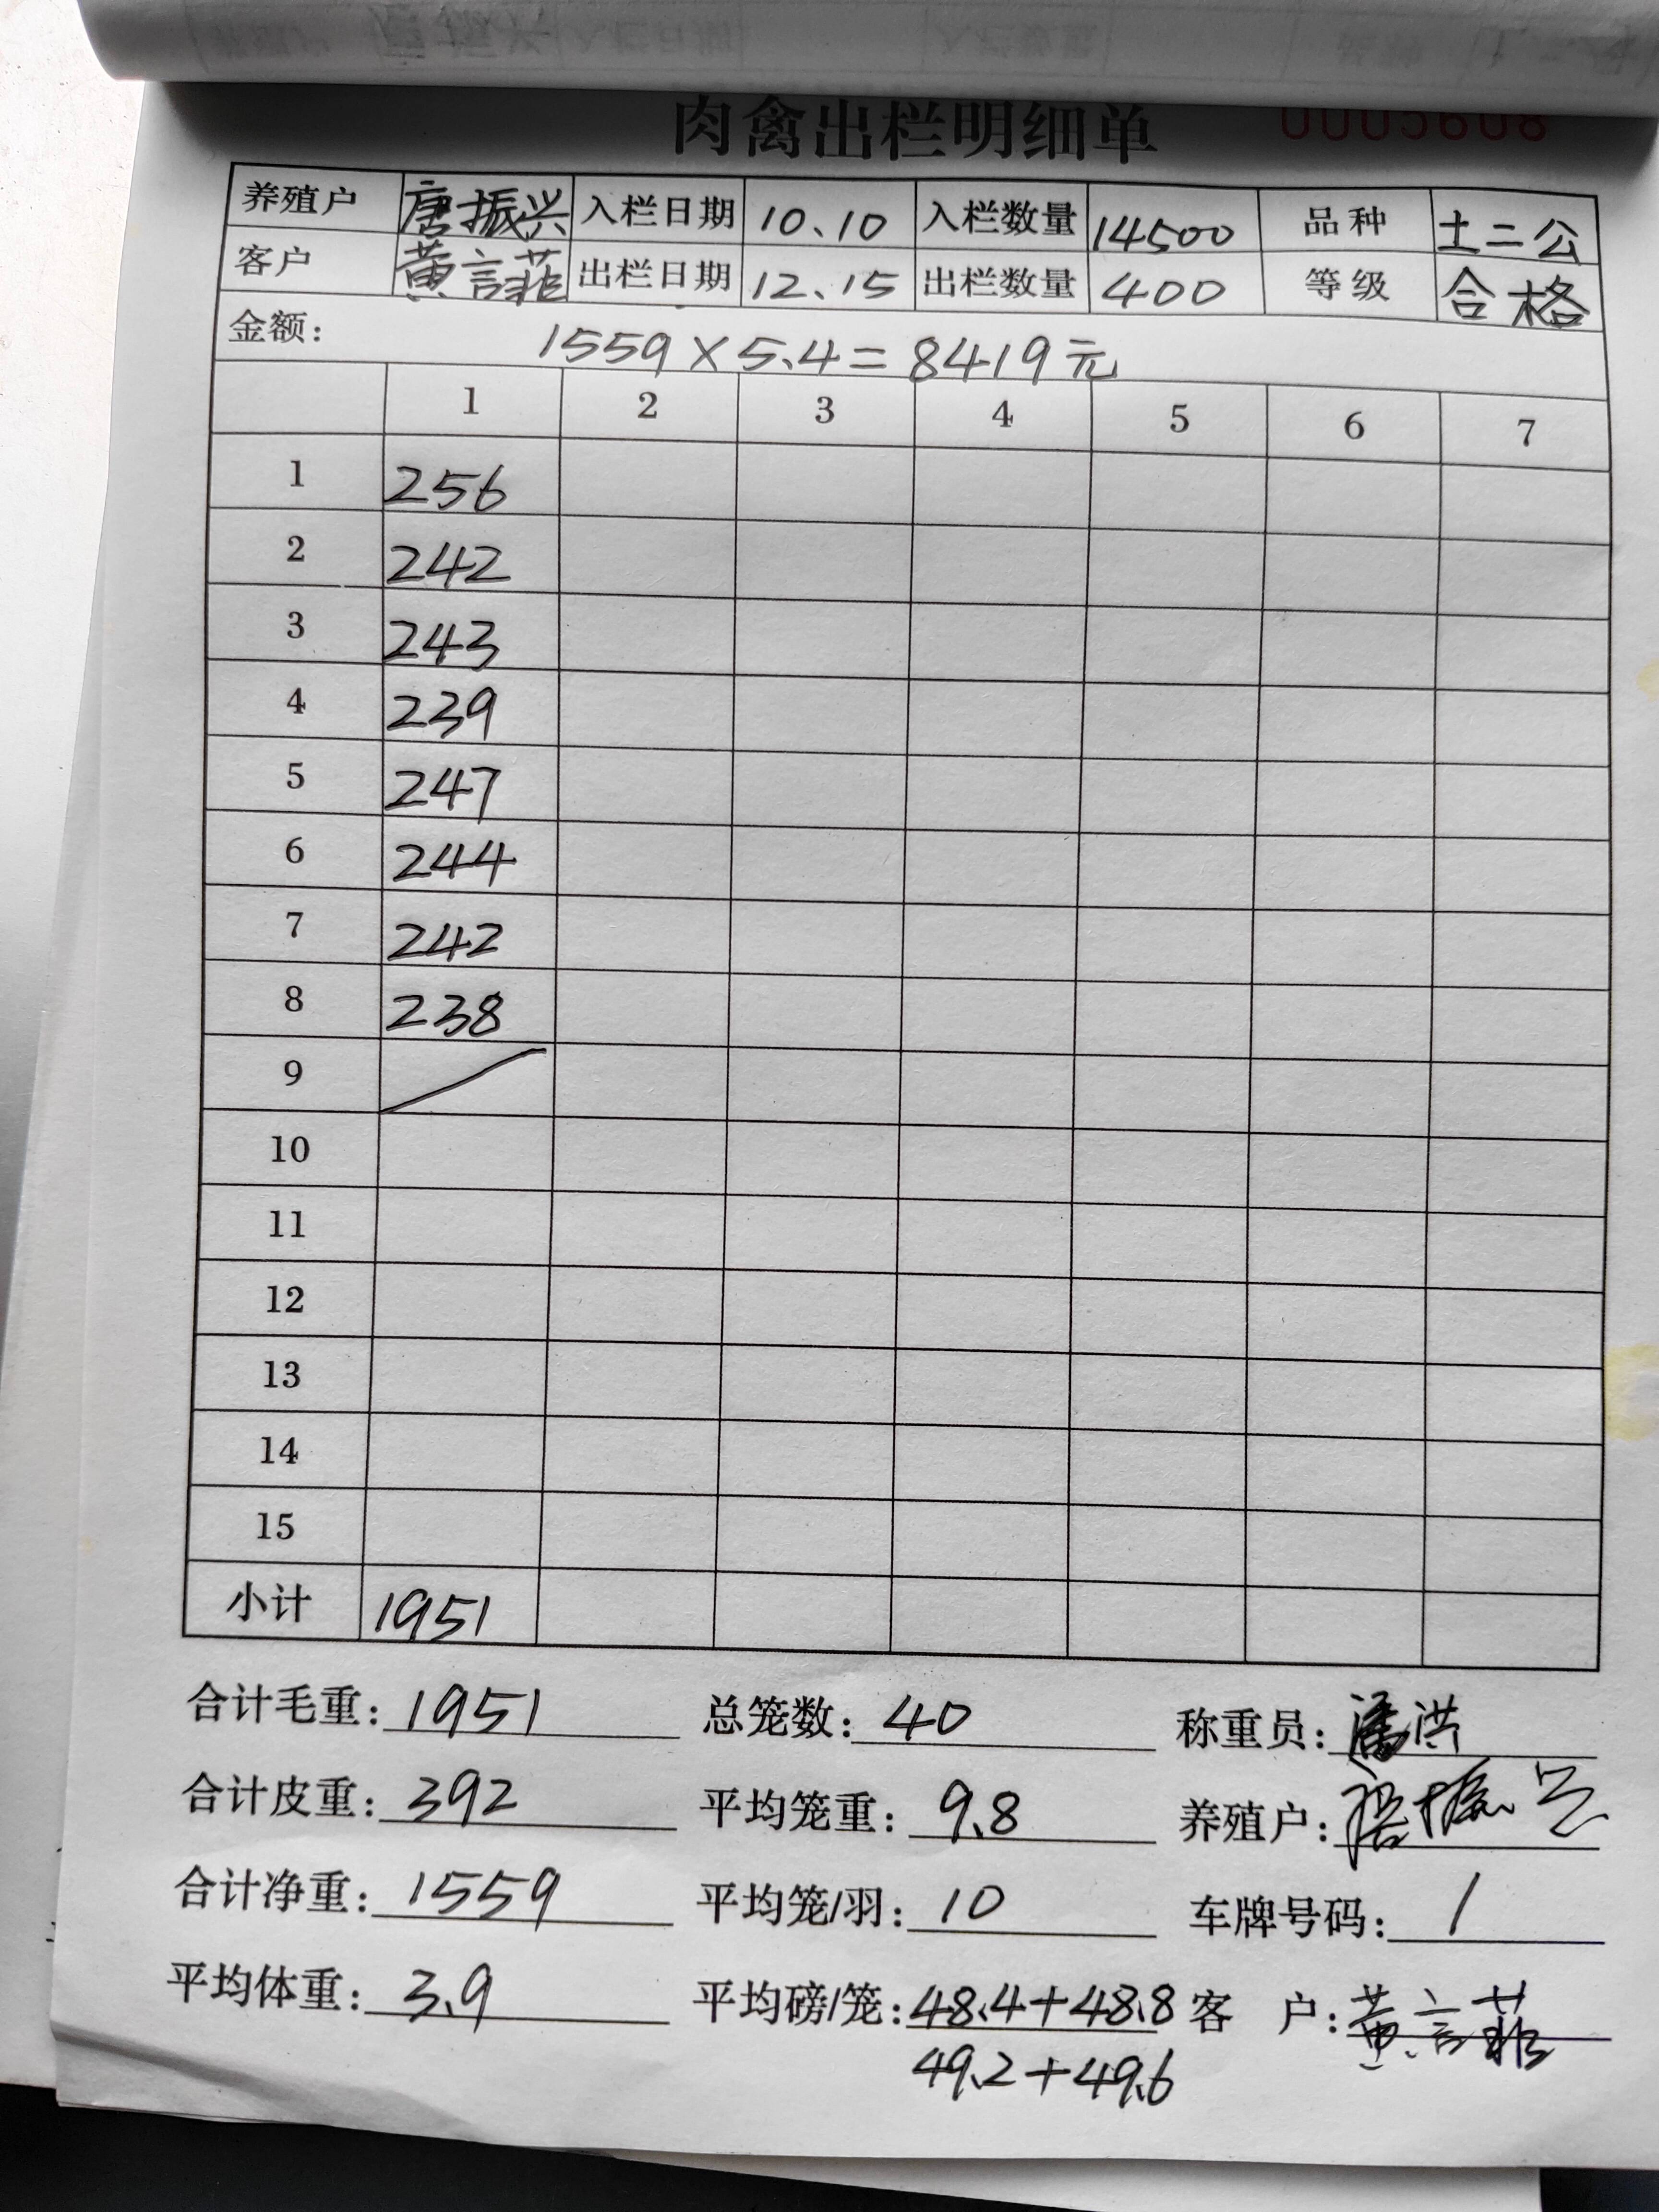 肉禽出栏明细单 0005608
养殖户 唐振兴 入栏日期 10、10 入栏数量 14500 品种 土二公
客户 黄言菲 出栏日期 12、15 出栏数量 400 等级 合格
金额: 1559×5.4=8419元
1 2 3 4 5 6 7
1 256
2 242
3 243
4 239
5 247
6 244
7 242
8 238
9
10
11
12
13
14
15
小计 1951
合计毛重: 1951 总笼数: 40 称重员: 潘洪
合计皮重: 392 平均笼重: 9.8 养殖户: 唐振兴
合计净重: 1559 平均笼/羽: 10 车牌号码: /
平均体重: 3.9 平均磅/笼: 48.4+48.8 客户: 黄言菲
49.2+49.6